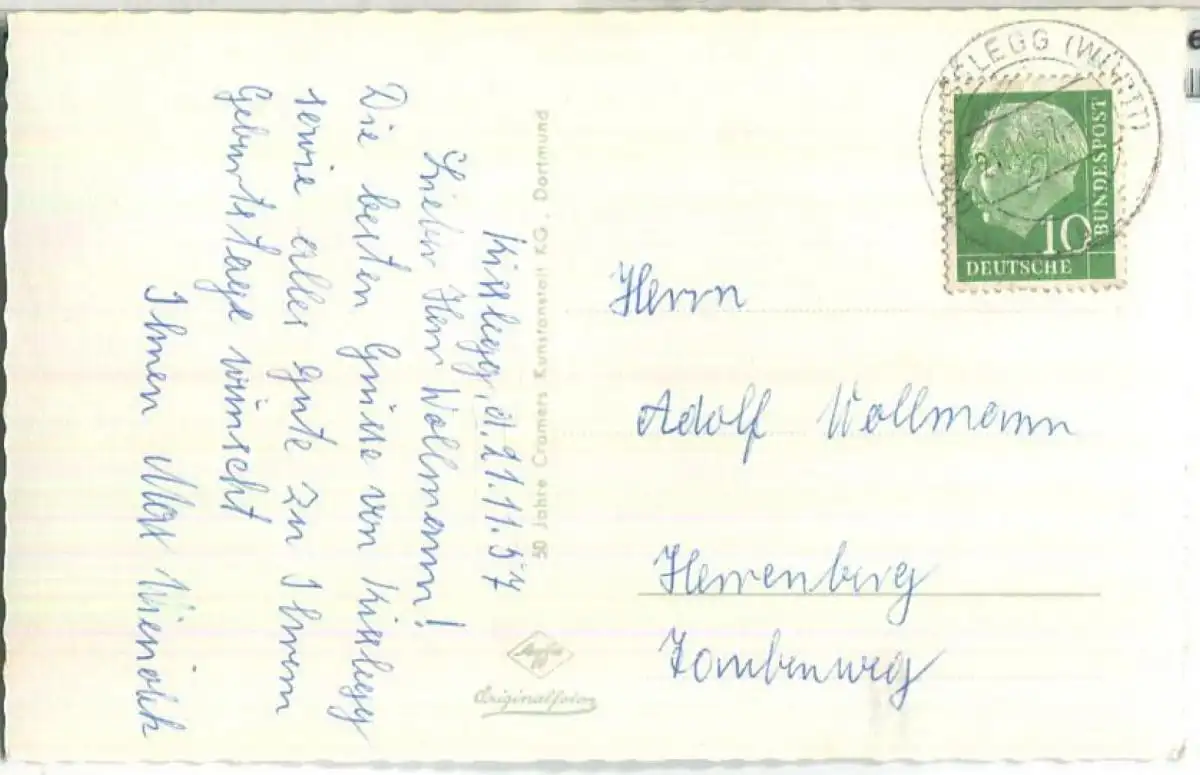 Kisslegg, d. 21.11.57
Lieber Herr Wollmann!
Die besten Grüsse von Kisslegg
sowie alles gute zu Ihrem
Geburtstage wünscht
Ihnen Max
50 Jahre Cramers Kunstanstalt KG, Dortmund
Agfa
Originalfoto
SSLEGG (WÜRTT)
10
DEUTSCHE
BUNDESPOST
Herrn
Adolf Wollmann
Herrenberg